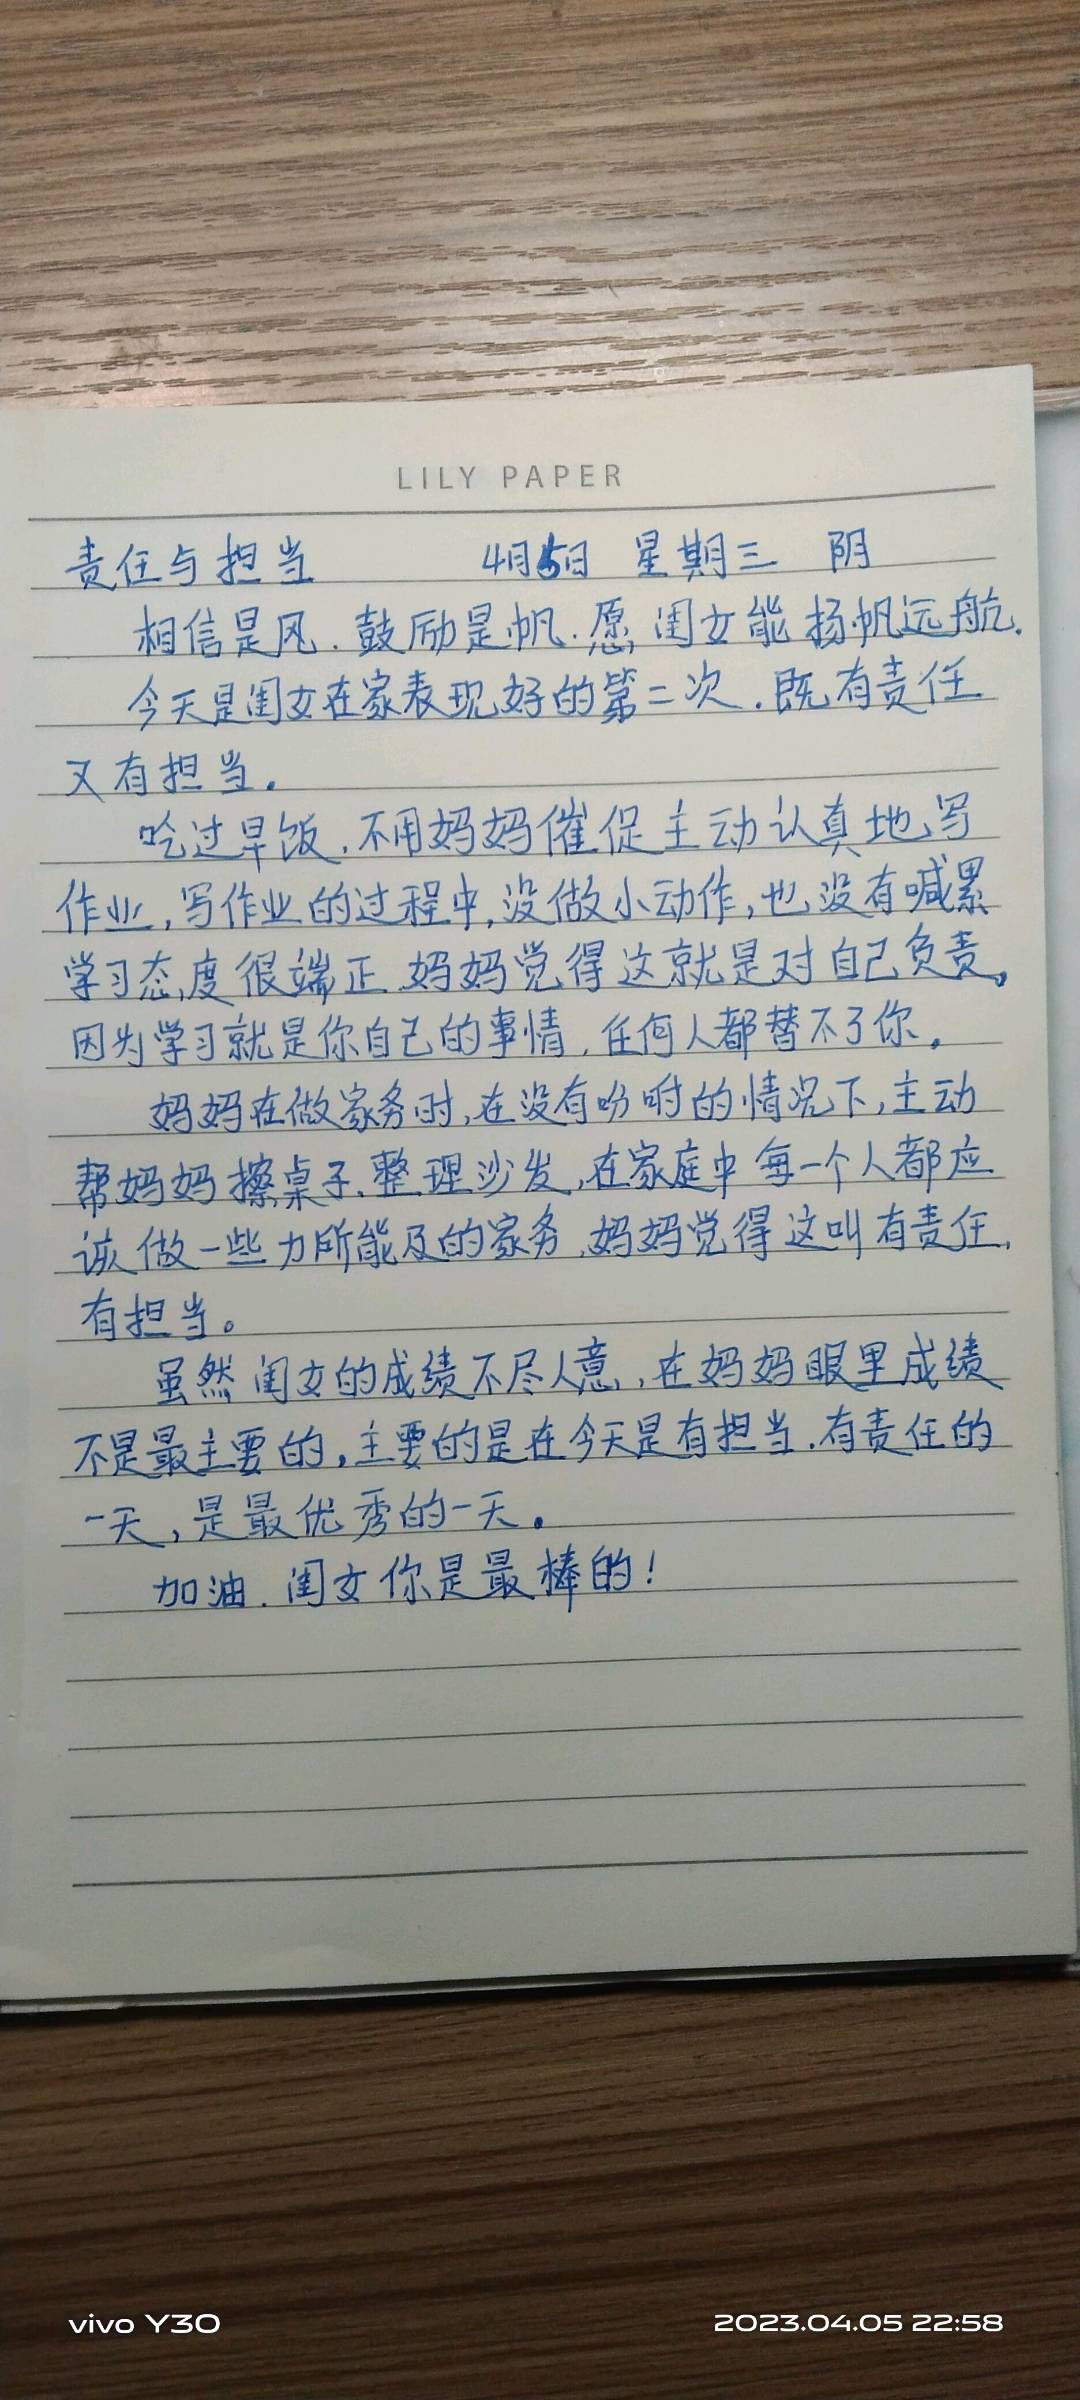 LILY PAPER
责任与担当 4月5日 星期三 阴
相信是风.鼓励是帆.愿闺女能扬帆远航.
今天是闺女在家表现好的第二次.既有责任
又有担当.
吃过早饭.不用妈妈催促主动认真地写
作业,写作业的过程中,没做小动作,也没有喊累
学习态度很端正.妈妈觉得这就是对自己负责,
因为学习就是你自己的事情,任何人都替不了你.
妈妈在做家务时,在没有吩咐的情况下,主动
帮妈妈擦桌子.整理沙发,在家庭中每一个人都应
该做一些力所能及的家务,妈妈觉得这叫有责任,
有担当。
虽然闺女的成绩不尽人意,在妈妈眼里成绩
不是最主要的,主要的是在今天是有担当.有责任的
一天,是最优秀的一天.
加油.闺女你是最棒的!
vivo Y30
2023.04.05 22:58